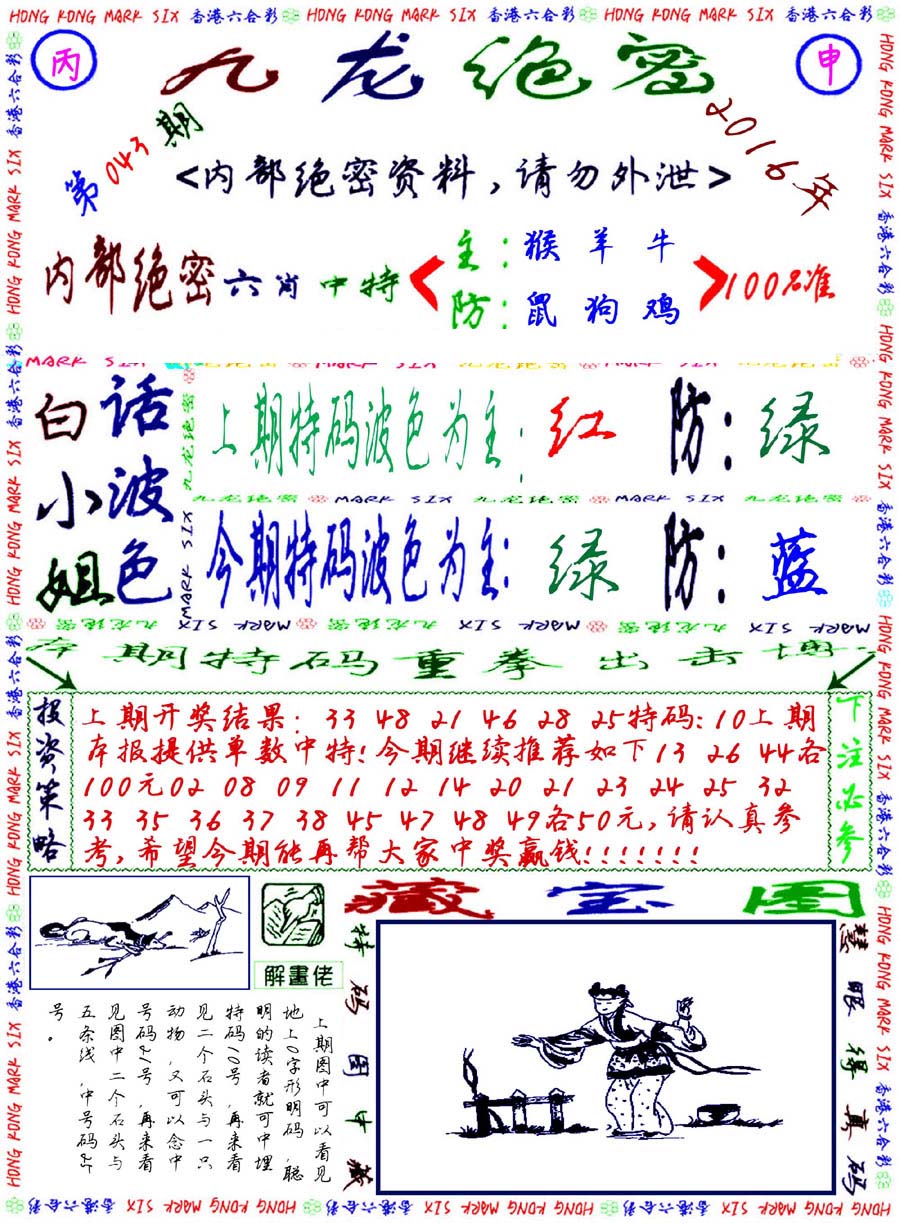 HONG KONG MARK SIX 香港六合彩 HONG KONG MARK SIX 香港六合彩 HONG KONG MARK SIX 香港六合彩
丙
九龙绝密
申
第043期
2016年
<内部绝密资料,请勿外泄>
内部绝密六肖中特
主:猴羊牛
防:鼠狗鸡
100%准
白话小波姐色
上期特码波色为主:红 防:绿
九龙绝密 MARK SIX 九龙绝密 MARK SIX 九龙绝密
今期特码波色为主:绿 防:蓝
期特码重拳出击
投资策略
上期开奖结果:33 48 21 46 28 25特码:10上期
本报提供单数中特!今期继续推荐如下13 26 44各
100元02 08 09 11 12 14 20 21 23 24 25 32
33 35 36 37 38 45 47 48 49各50元,请认真参
考,希望今期能再帮大家中奖赢钱!!!!!!!
下注必参
藏宝图
解畫佬
特码图中藏
慧眼得真码
上期图中可以看见
地上0字形明码,聪
明的读者就可中埋
特码10号,再来看
见二个石头与一只
动物,又可以念中
号码21号,再来看
见图中二个石头与
五条线,中号码25
号。
HONG KONG MARK SIX 香港六合彩 HONG KONG MARK SIX 香港六合彩 HONG KONG MARK SIX 香港六合彩